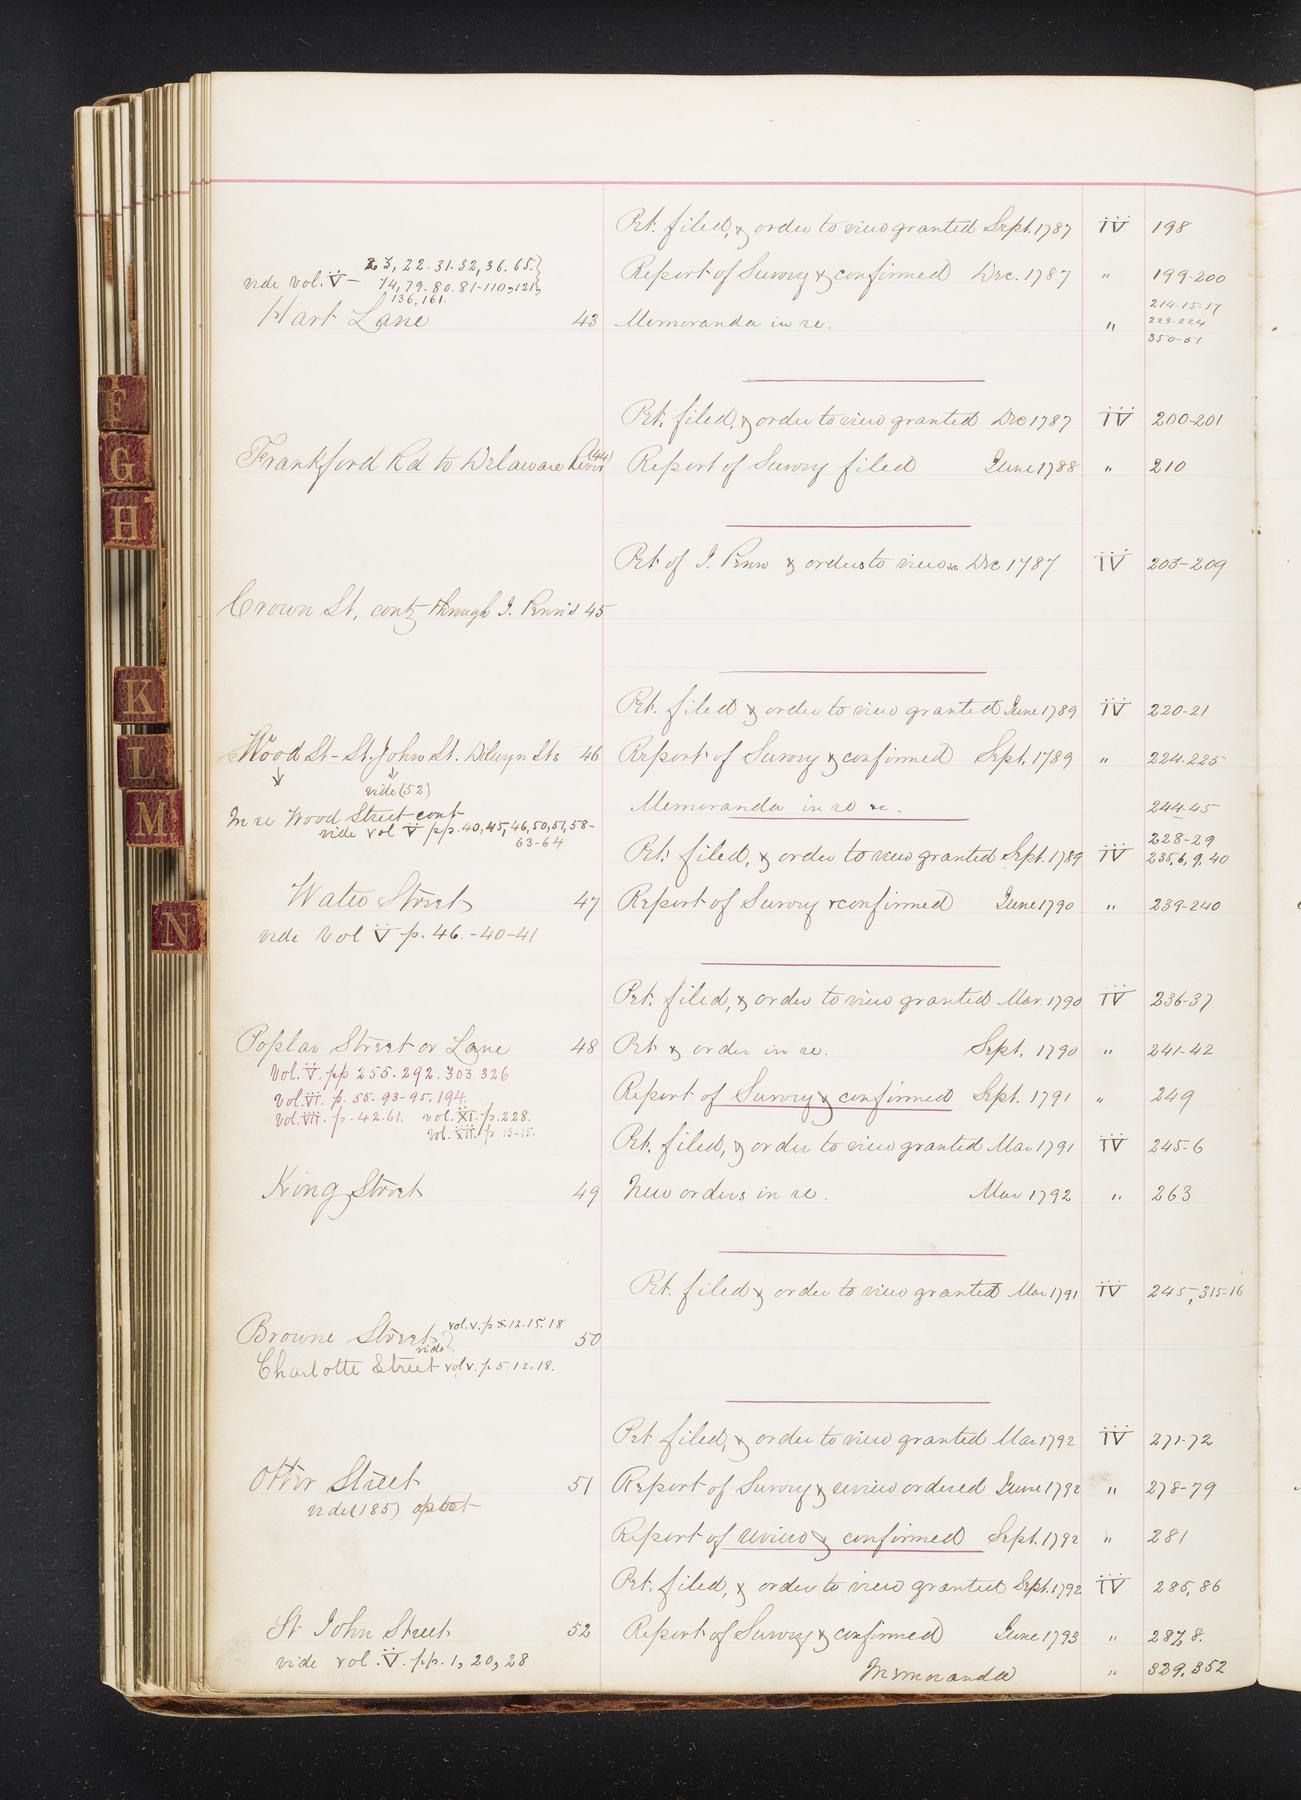 F
G
H
K
L
M
N
Pet. filed, & order to view granted Sept. 1787 IV 198
vide vol. V - 23, 22. 31. 32, 36. 65.
74, 79. 80. 81-110, 121,
136, 161.
Report of Survey & confirmed Dec. 1787 " 199-200
Hart Lane 43 Memoranda in re. " 214-15-17
223-224
350-51
Pet. filed, & order to view granted Dec 1787 IV 200-201
Frankford Rd to Delaware River (44) Report of Survey filed June 1788 " 210
Pet of J. Penn & orders to view &c Dec 1787 IV 203-209
Crown St, contg through J. Penn's 45
Pet. filed & order to view granted June 1789 IV 220-21
Wood St - St. John St. Dilwyn Sts 46 Report of Survey & confirmed Sept. 1789 " 224-225
vide (52)
Memoranda in re &c. 244-45
In re Wood Street cont
vide vol V pp. 40, 45, 46, 50, 51, 58-
63-64
Pet. filed, & order to view granted Sept. 1789 IV 228-29
235, 6, 9, 40
Water Street 47 Report of Survey & confirmed June 1790 " 239-240
vide Vol V p. 46. -40-41
Pet. filed, & order to view granted Mar. 1790 IV 236-37
Poplar Street or Lane 48 Pet & order in re. Sept. 1790 " 241-42
Vol. V. pp 255. 292. 303. 326
Vol. VI. p. 55. 93-95. 194.
Report of Survey & confirmed Sept. 1791 " 249
Vol. VII. p. 42. 61. vol. XI. p. 228.
vol. XII. p 13-15.
Pet. filed, & order to view granted Mar 1791 IV 245-6
King Street 49 New orders in re. Mar 1792 " 263
Pet. filed & order to view granted Mar 1791 IV 245, 315-16
Browne Street vol. v. p 5. 12. 15. 18 50
vide
Charlotte Street vol v. p 5. 12. 18.
Pet. filed, & order to view granted Mar 1792 IV 271-72
Otter Street 51 Report of Survey & review ordered June 1792 " 278-79
vide (185)
Report of review & confirmed Sept. 1792 " 281
Pet. filed, & order to view granted Sept. 1792 IV 285, 86
St John Street 52 Report of Survey & confirmed June 1793 " 287, 8.
vide vol. V. pp. 1, 20, 28
Memoranda " 329, 352